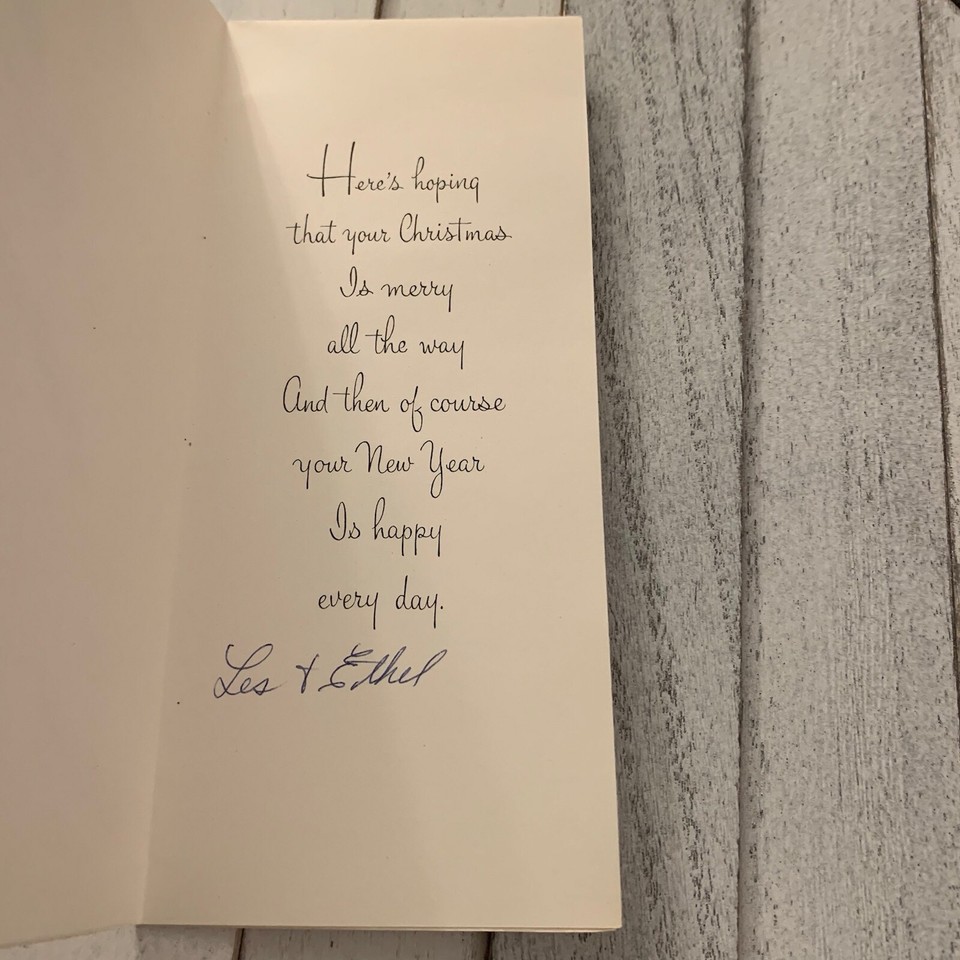 Here's hoping
that your Christmas
Is merry
all the way
And then of course
your New Year
Is happy
every day.
Les + Ethel